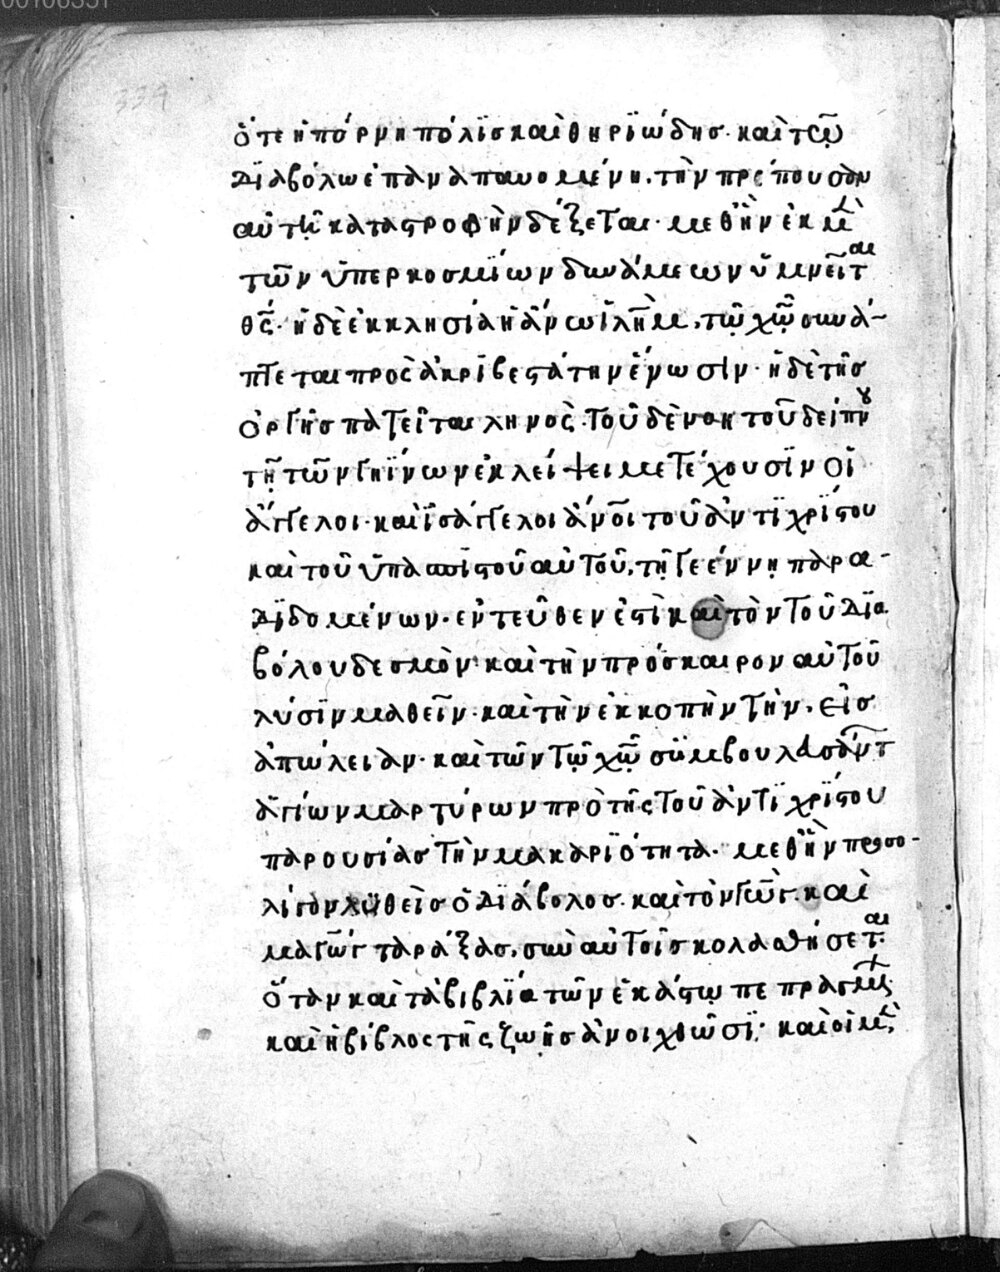 00100351
334
ὅτε ἡ πόρνη πόλϊς καὶ θηρϊώδης· καὶ τῷ
Δϊαβόλω ἐπαναπαυομένη, τὴν πρέπουσαν
αὐτῇ καταστροφὴν δέξεται· μεθ ἣν ἐκ
τῶν ὑπερκοσμΐων δυνάμεων ὑμνεῖται
θς· ἡ δὲ ἐκκλησία ἡ ἄνω ἱλὴμ, τῷ χῷ συνά-
πτεται πρὸς ἀκρϊβεστάτην ἕνωσϊν· ἡ δὲ τῆς
ὀργῆς πατεῖται ληνὸς· τοῦ δὲ νοητοῦ δείπνου
τῇ τῶν γηΐνων ἐκλείψει μετέχουσϊν οἱ
ἄγγελοι· καὶ ἰσάγγελοι ἄνοι τοῦ ἀντϊχρΐστου
καὶ τοῦ ὑπασπιστοῦ αὐτοῦ, τῇ γεέννῃ παρα-
Δϊδομένων· ἐντεῦθεν ἐστὶ καὶ τὸν τοῦ Δϊα
βόλου δεσμὸν καὶ τὴν πρόσκαιρον αὐτοῦ
λύσϊν μαθεῖν· καὶ τὴν ἐκκοπὴν τὴν, εἰς
ἀπώλειαν· καὶ τῶν τῷ χῷ συμβουλασάντ
ἁγίων μαρτύρων πρὸ τῆς τοῦ ἀντϊχρΐστου
παρουσίας τὴν μακαρϊότητα· μεθ ἣν προσο-
λίγον λυθεὶς ὁ Δϊάβολος· καὶ τὸν γὼγ· καὶ
μαγὼγ ταράξας, σὺν αὐτοῖς κολασθήσεται·
ὅταν καὶ τὰ βιβλΐα τῶν ἑκάστω πεπραγμένων
καὶ ἡ βίβλος τῆς ζωῆς ἀνοιχθῶσϊ· καὶ οἱ